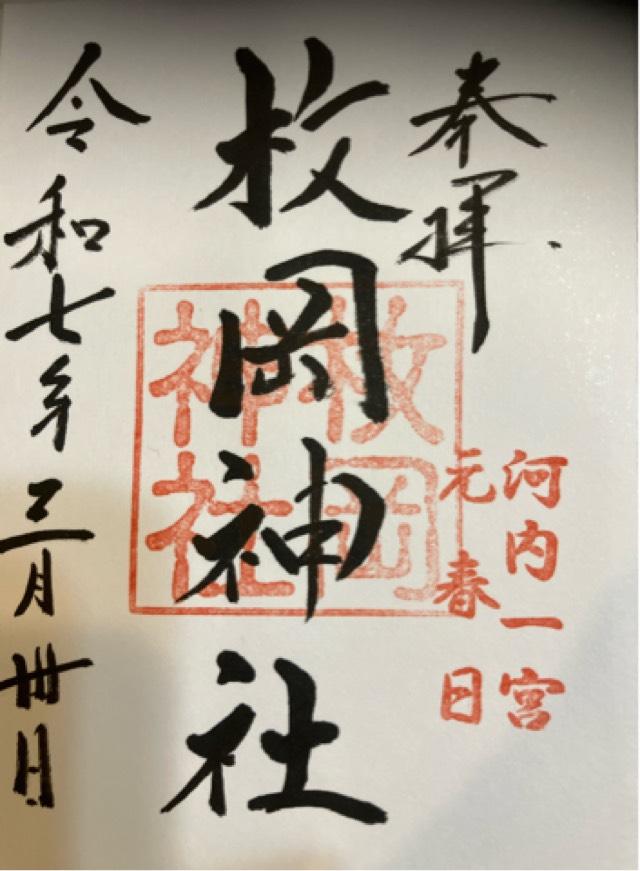 奉拝
河内一宮
元春日
枚岡神社
枚岡
神社
令和七年三月卅日